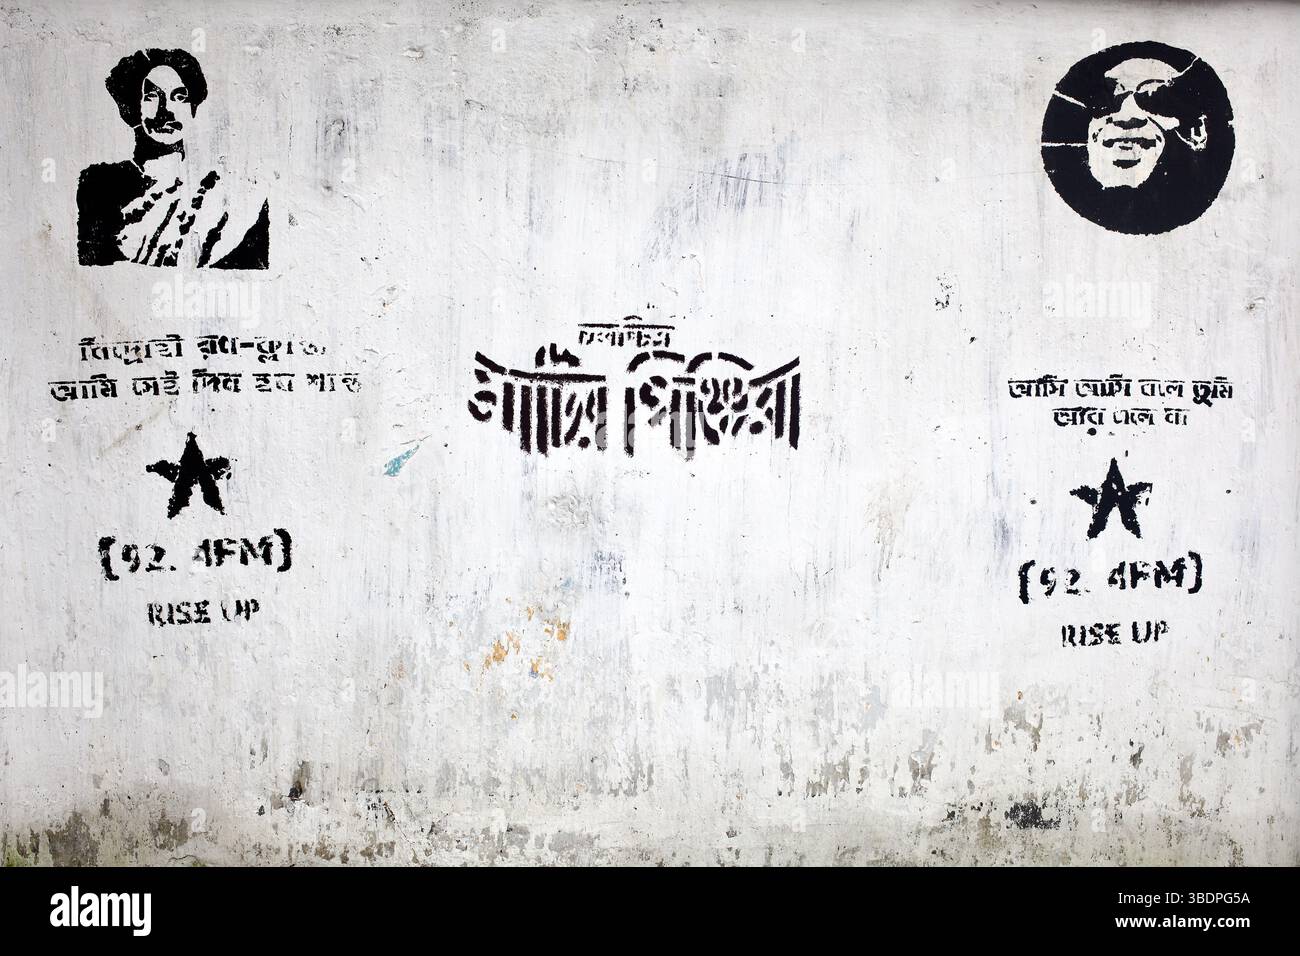 বিদ্রোহী রণ-ক্লান্ত
আমি সেই দিন হব শান্ত
[92.4FM]
RISE UP
চলচ্চিত্র
মাটির পিঞ্জিরা
আসি আসি বলে তুমি
আর এলে না
[92.4FM]
RISE UP
alamy
Image ID: 3BDPG5A
www.alamy.com